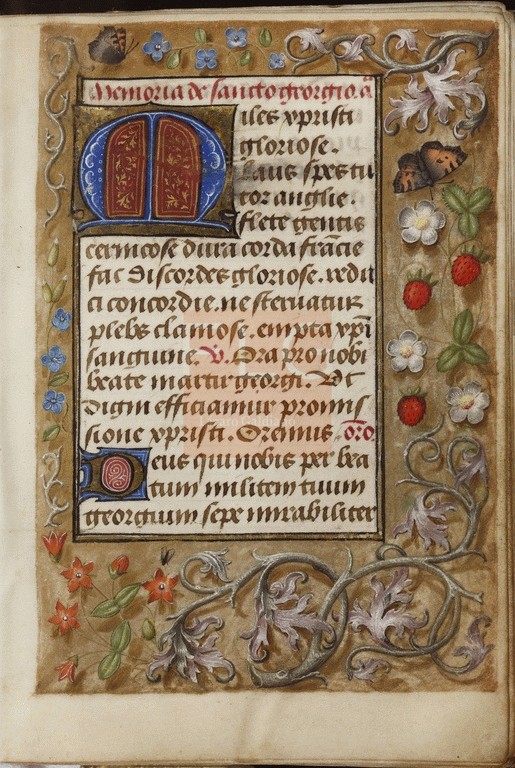 Memoria de sancto georgio. a
Miles xpristi
gloriose.
laus spes tu
tor anglie.
flete gentis
ceruicose dura corda francie
fac discordes gloriose. redu
ci concordie. ne steruatur
plebs clamose. empta xpi
sanguine. V. Ora pro nobi
beate martir georgi. Vt
digni efficiamur promis
sione xpristi. Oremus. oro
Deus qui nobis per bea
tum militem tuum
georgium sepe mirabiliter